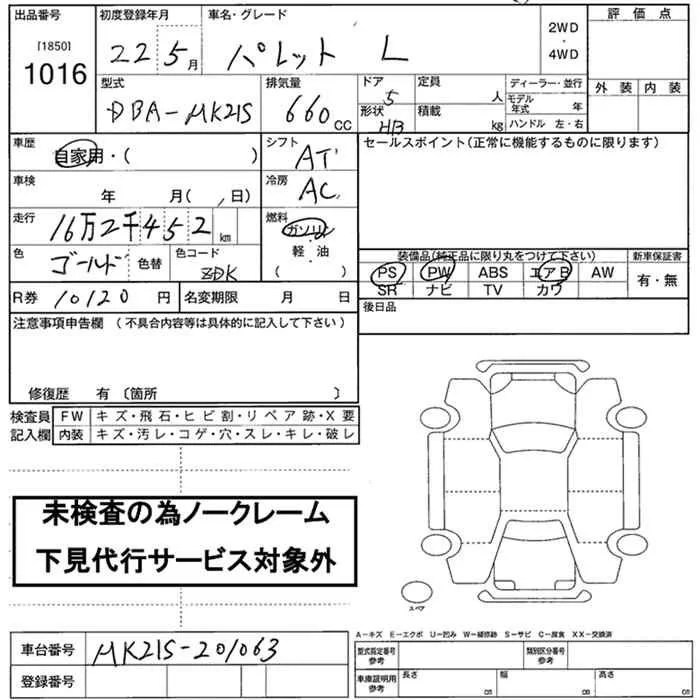 出品番号 初度登録年月 車名・グレード 2WD・4WD 評価点
[1850]
1016 22 5月 パレット L
外装 内装
型式 排気量 ドア 定員 ディーラー・並行
DBA-MK21S 660cc 5 人 モデル年式 年
形状 HB 積載 kg ハンドル 左・右
車歴 シフト セールスポイント(正常に機能するものに限ります)
自家用・( ) AT
車検 冷房
年 月( , 日) AC
走行 燃料
16万2千452km ガソリン
色 色コード 軽・油
ゴールド 色替 ZDK ( )
装備品(純正品に限り丸をつけて下さい) 新車保証書
PS PW ABS エアB AW 有・無
SR ナビ TV カワ
R券 10120円 名変期限 月 日 後日品
注意事項申告欄 (不具合内容等は具体的に記入して下さい)
修復歴 有 〔箇所 〕
検査員 FW キズ・飛石・ヒビ割・リペア跡・X要
記入欄 内装 キズ・汚レ・コゲ・穴・スレ・キレ・破レ
未検査の為ノークレーム
下見代行サービス対象外
スペア
A-キズ E-エクボ U-凹み W-補修跡 S-サビ C-腐食 XX-交換済
車台番号 MK21S-201063 型式指定番号参考 類別区分番号参考
登録番号 車庫証明用参考 長さ cm 幅 cm 高さ cm